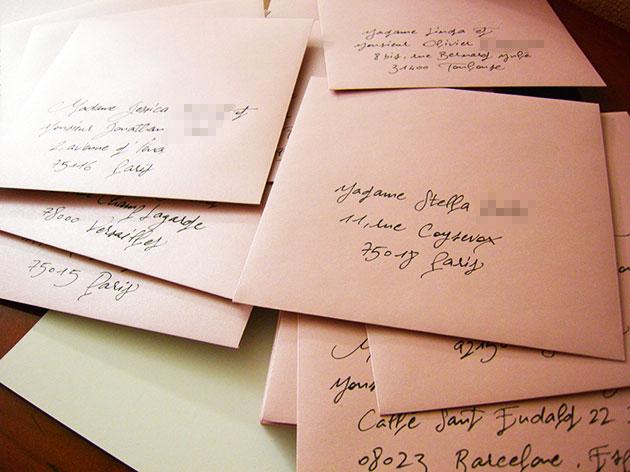 Madame Linda et
Monsieur Olivier
8 bis, rue Bernard Mulé
31400 Toulouse
Madame Jessica et
Monsieur Jonathan
avenue d'Iéna
75116 Paris
Champ Lagarde
78000 Versailles
75015 Paris
Madame Stella
11, rue Coysevox
75018 Paris
Calle Sant Eudald 22
08023 Barcelone.